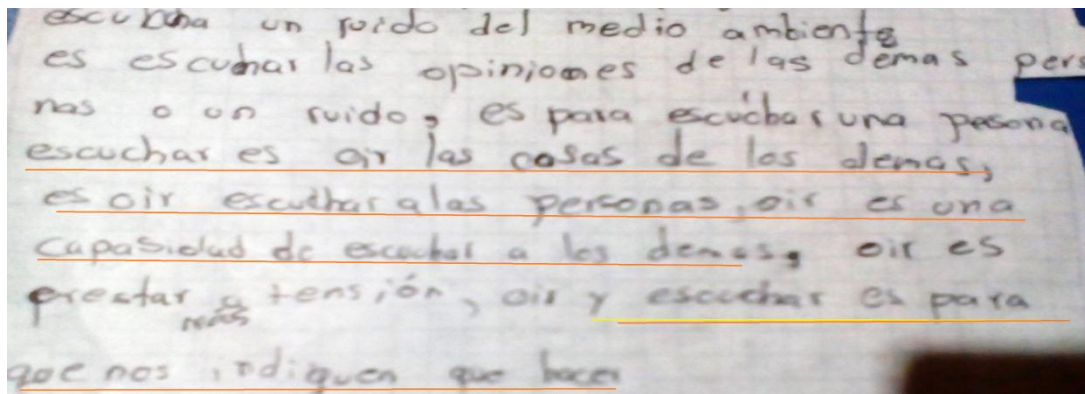 escucha un ruido del medio ambiente
es escuchar las opiniones de las demas pers
nas o un ruido, es para escuchar una pesona
escuchar es oir las cosas de los demas,
es oir escuchar a las personas, oir es una
capasidad de escuchar a los demas, oir es
prestar a tensión, oir y escuchar es para
mas
que nos indiquen que hacer